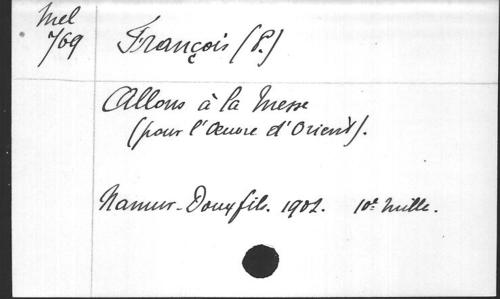 Mel
769
François (P.)
Allons à la Messe
(pour l'Oeuvre d'Orient).
Namur-Douxfils. 1902. 10e mille.